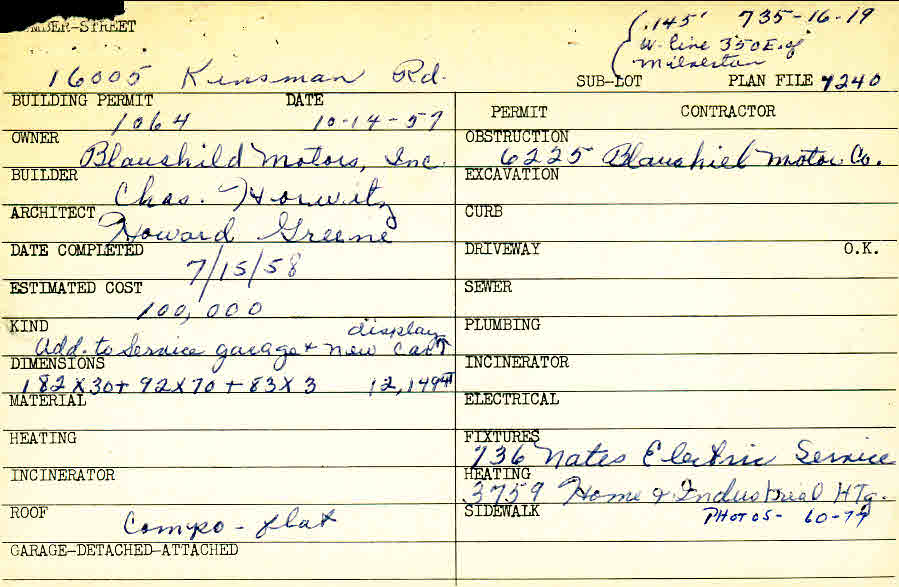 NUMBER-STREET
.145' 735-16-19
W. line 350 E. of
Milverton
16005 Kinsman Rd.
SUB-LOT PLAN FILE 7240
BUILDING PERMIT DATE
1064 10-14-57
PERMIT CONTRACTOR
OWNER
Blaushild Motors, Inc.
OBSTRUCTION
6225 Blaushiel Motor Co.
BUILDER
Chas. Horwitz
EXCAVATION
ARCHITECT
Howard Greene
CURB
DATE COMPLETED
7/15/58
DRIVEWAY O.K.
ESTIMATED COST
100,000
SEWER
KIND
display
Add. to Service garage + new car
PLUMBING
DIMENSIONS
182 X 30 + 92 X 70 + 83 X 3 12,149
INCINERATOR
MATERIAL
ELECTRICAL
HEATING
FIXTURES
736 Nates Electric Service
INCINERATOR
HEATING
3759 Home & Industrial Htg.
ROOF
Compo - flat
SIDEWALK
PHOTOS- 60-77
GARAGE-DETACHED-ATTACHED